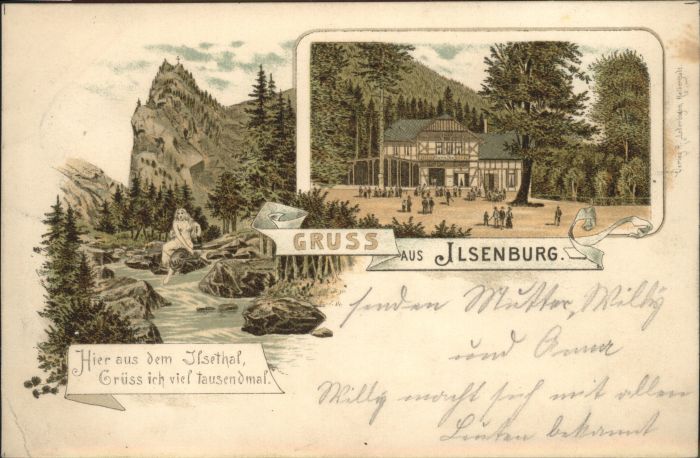 GRUSS
AUS ILSENBURG.
Hier aus dem Ilsethal,
Grüss ich viel tausendmal.
senden Mutter, Willy
und Anna
Willy macht sich mit allen
Leuten bekannt